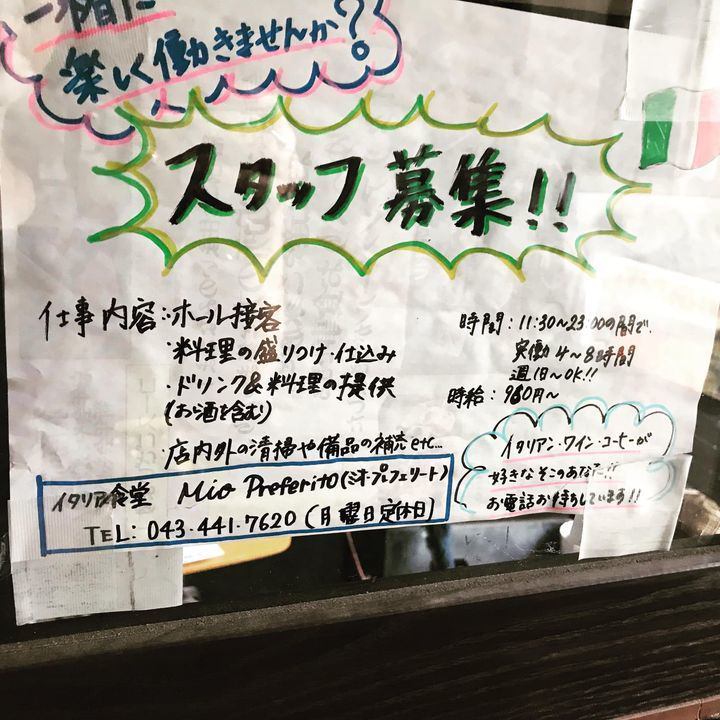 一緒に
楽しく働きませんか?
スタッフ募集!!
仕事内容:・ホール接客
・料理の盛りつけ・仕込み
・ドリンク&料理の提供
(お酒を含む)
・店内外の清掃や備品の補充etc...
時間:11:30~23:00の間で
実働4~8時間
週1日~OK!!
時給:960円~
イタリアン・ワイン・コーヒーが
好きなそこのあなた!!
お電話お待ちしています!!
イタリア食堂 Mio Preferito(ミオ・プレフェリート)
TEL:043-441-7620(月曜日定休日)